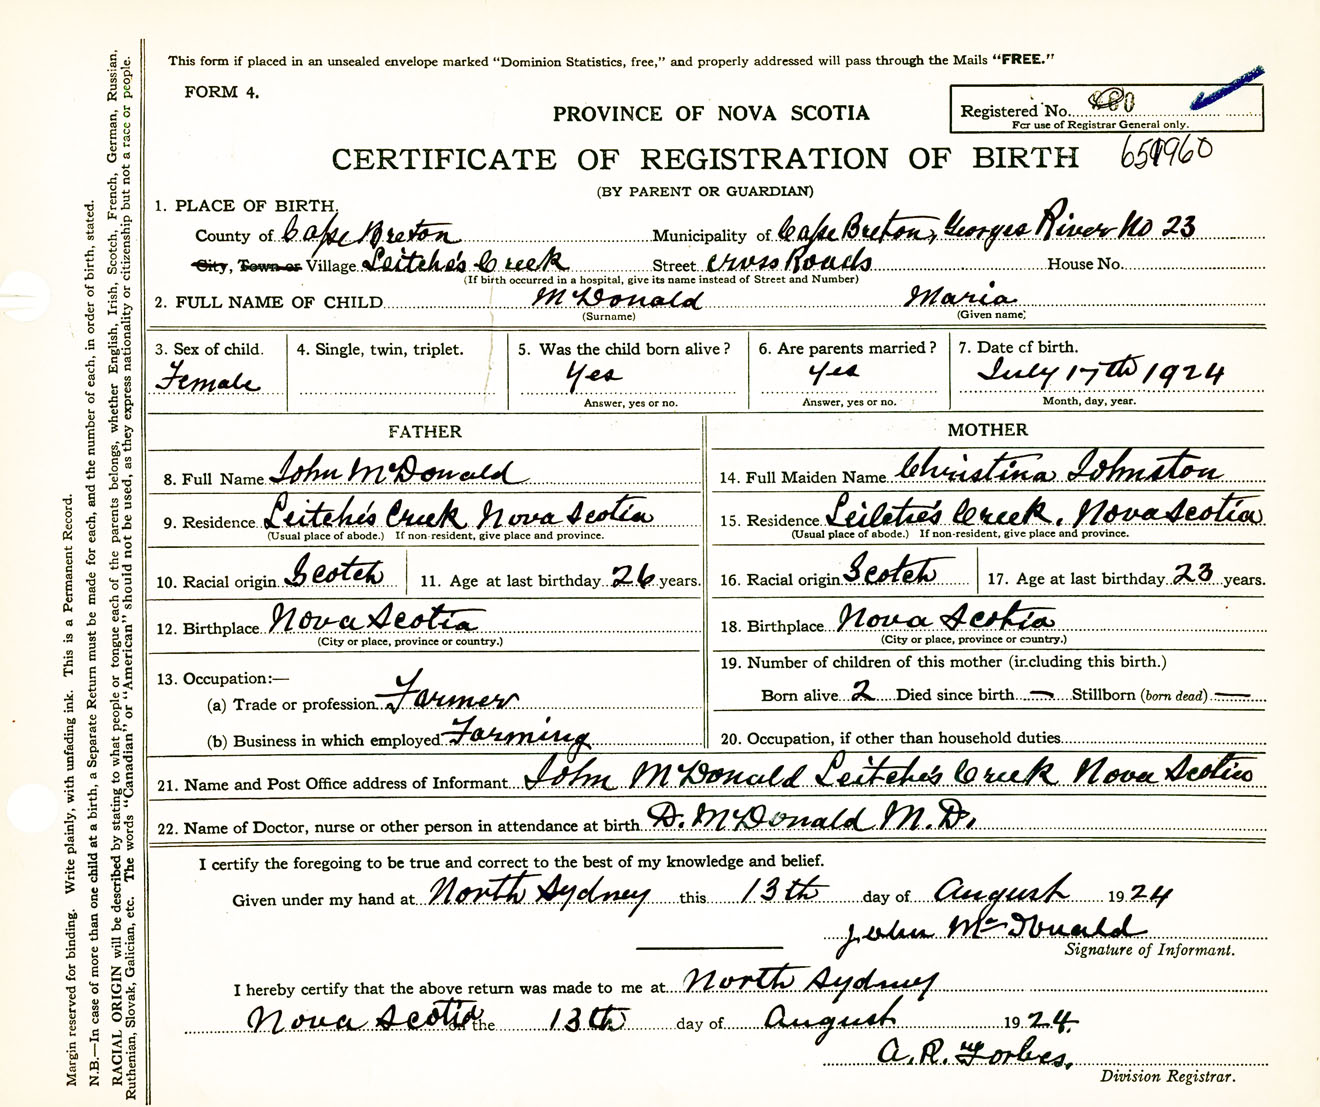 This form if placed in an unsealed envelope marked “Dominion Statistics, free,” and properly addressed will pass through the Mails “FREE.”
FORM 4.
PROVINCE OF NOVA SCOTIA
Registered No.
For use of Registrar General only.
CERTIFICATE OF REGISTRATION OF BIRTH
(BY PARENT OR GUARDIAN)
1. PLACE OF BIRTH.
County of Cape Breton Municipality of Cape Breton, Georges River No 23
City, Town or Village Leitche's Creek Street Cross Roads House No.
(If birth occurred in a hospital, give its name instead of Street and Number)
2. FULL NAME OF CHILD McDonald Maria
(Surname) (Given name)
3. Sex of child. 4. Single, twin, triplet. 5. Was the child born alive? 6. Are parents married? 7. Date of birth.
Female Yes Yes July 17th 1924
Answer, yes or no. Answer, yes or no. Month, day, year.
FATHER MOTHER
8. Full Name John McDonald 14. Full Maiden Name Christina Johnston
9. Residence Leitche's Creek Nova Scotia 15. Residence Leitche's Creek. Nova Scotia
(Usual place of abode.) If non-resident, give place and province. (Usual place of abode.) If non-resident, give place and province.
10. Racial origin Scotch 11. Age at last birthday 26 years. 16. Racial origin Scotch 17. Age at last birthday 23 years.
12. Birthplace Nova Scotia 18. Birthplace Nova Scotia
(City or place, province or country.) (City or place, province or country.)
13. Occupation:— 19. Number of children of this mother (including this birth.)
(a) Trade or profession Farmer Born alive 2 Died since birth — Stillborn (born dead) —
(b) Business in which employed Farming 20. Occupation, if other than household duties
21. Name and Post Office address of Informant John McDonald Leitche's Creek Nova Scotia
22. Name of Doctor, nurse or other person in attendance at birth D. McDonald M.D.
I certify the foregoing to be true and correct to the best of my knowledge and belief.
Given under my hand at North Sydney this 13th day of August 1924
John McDonald
Signature of Informant.
I hereby certify that the above return was made to me at North Sydney
Nova Scotia on the 13th day of August 1924.
A. R. Forbes.
Division Registrar.
Margin reserved for binding. Write plainly, with unfading ink. This is a Permanent Record.
N.B.—In case of more than one child at a birth, a Separate Return must be made for each, and the number of each, in order of birth, stated.
RACIAL ORIGIN will be described by stating to what people or tongue each of the parents belongs, whether English, Irish, Scotch, French, German, Russian,
Ruthenian, Slovak, Galician, etc. The words “Canadian” or “American” should not be used, as they express nationality or citizenship but not a race or people.